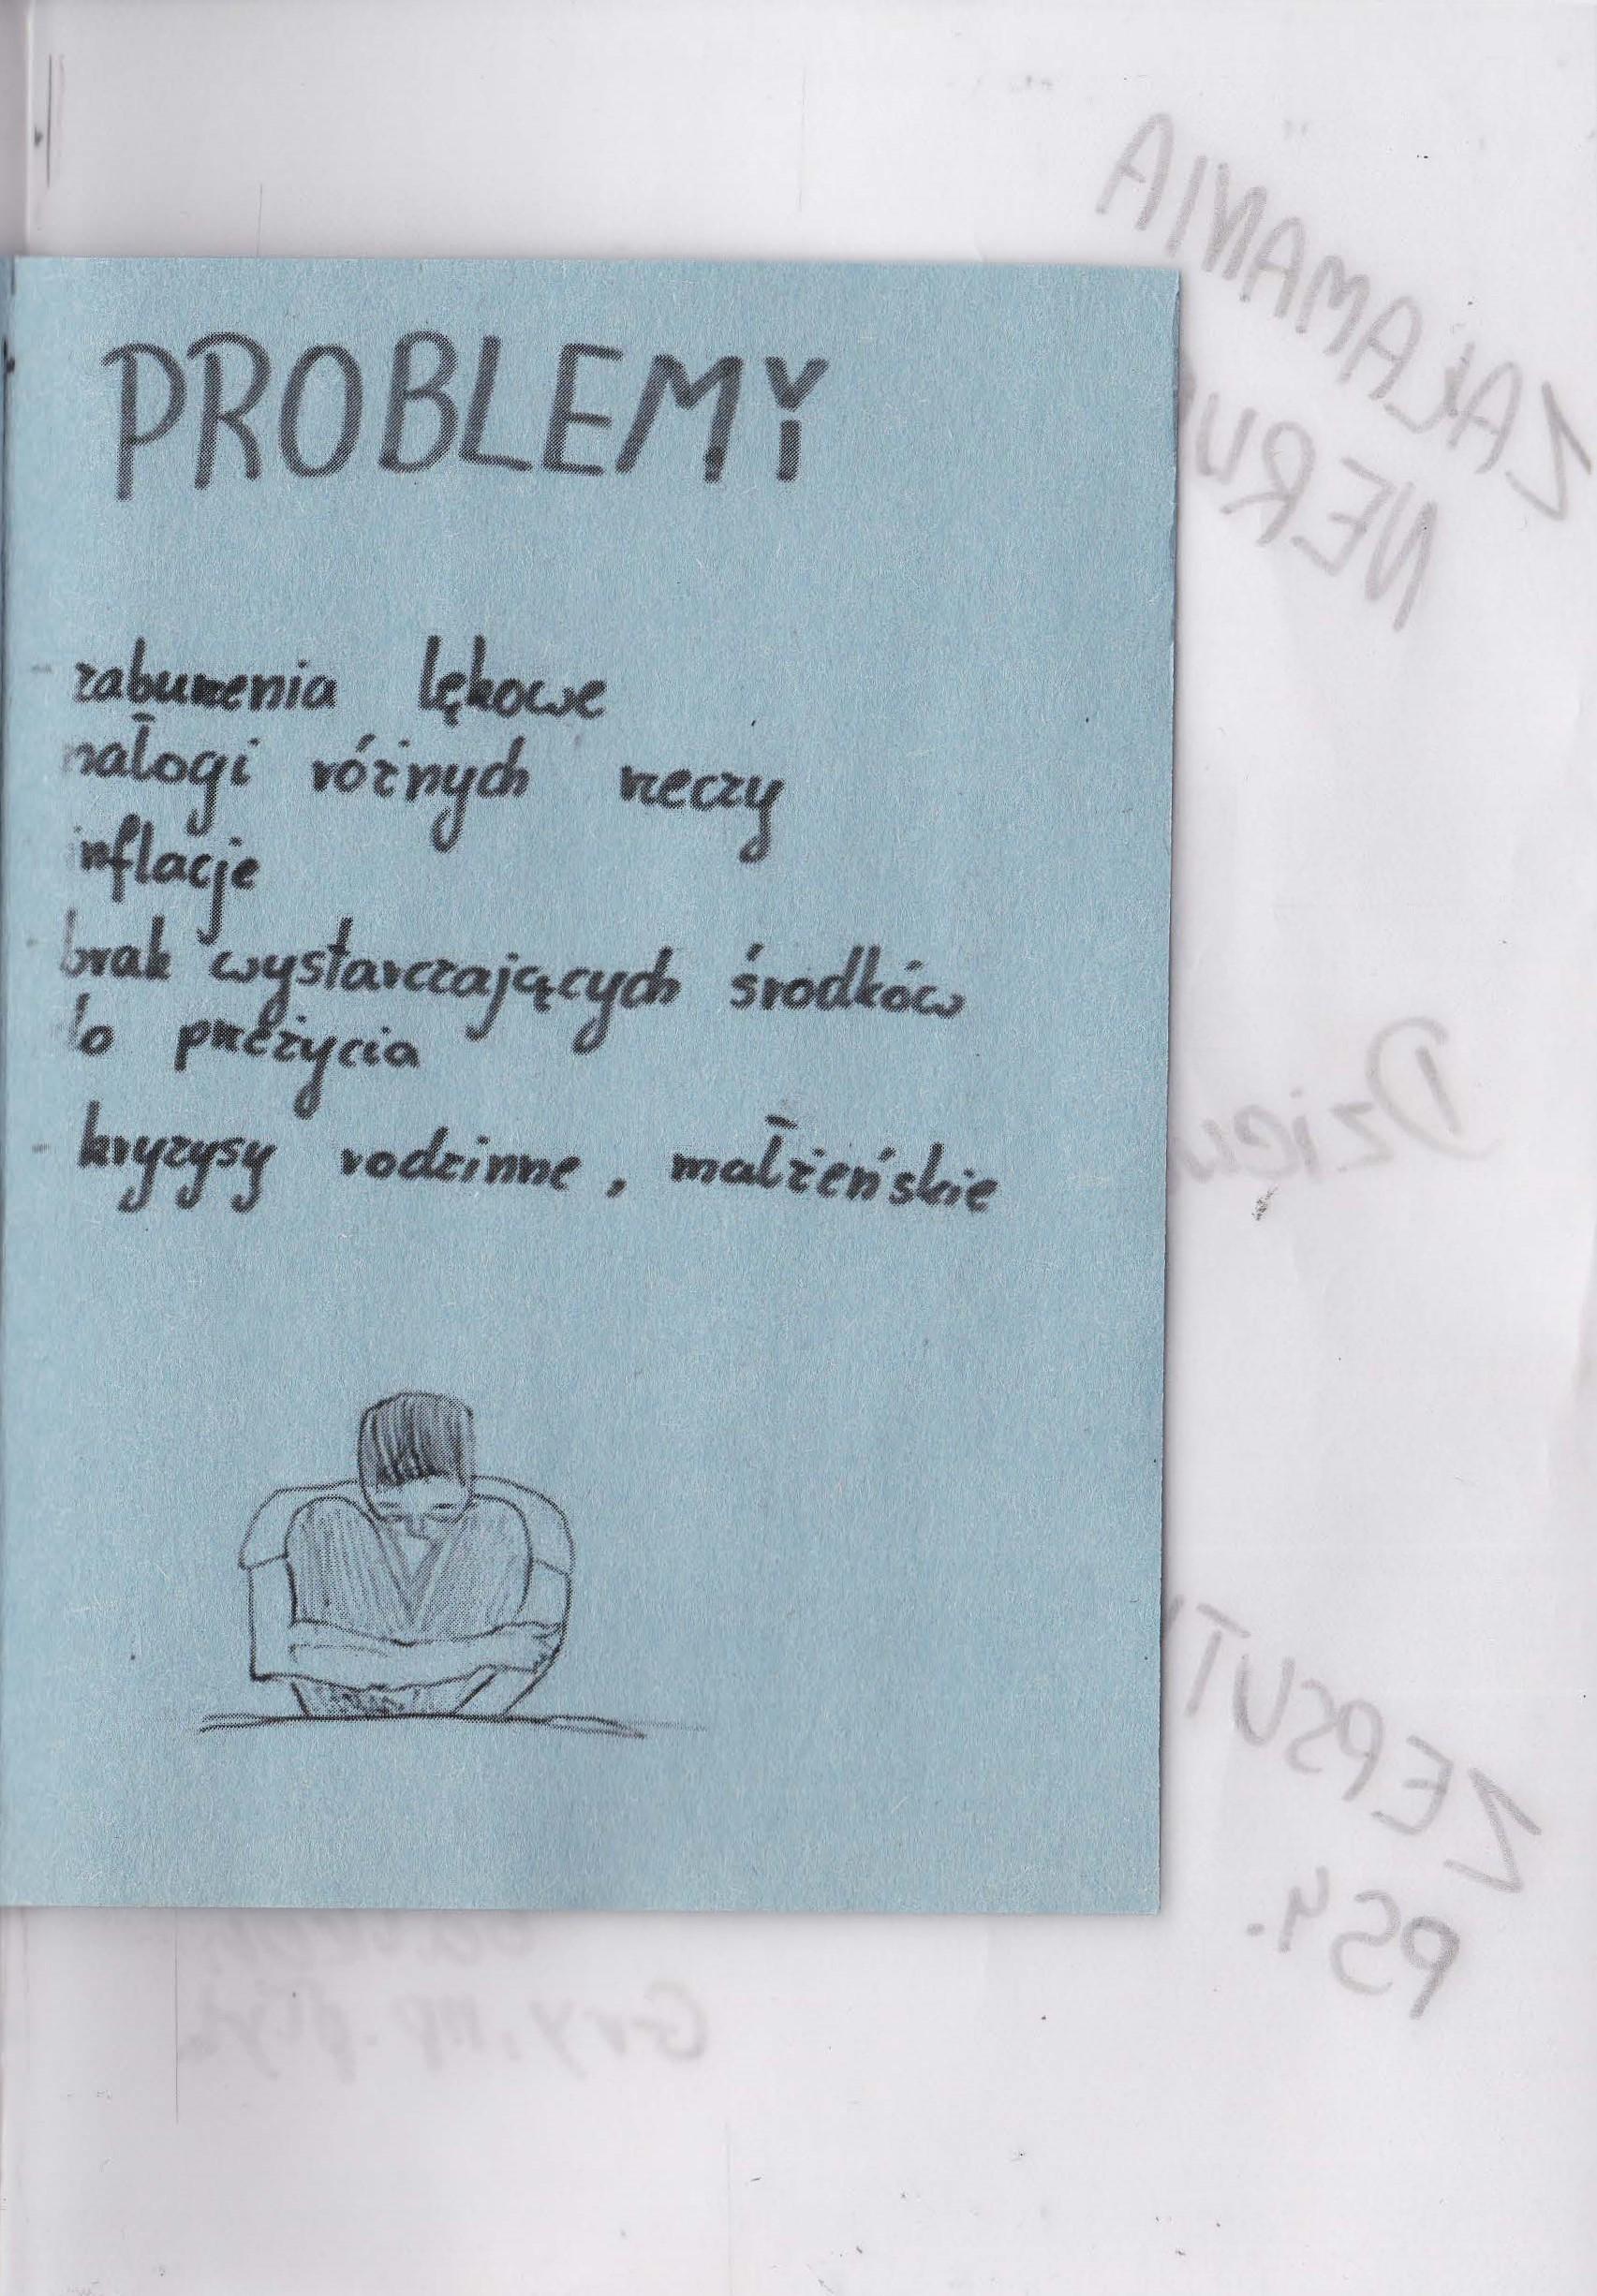 PROBLEMY
- zaburzenia lękowe
nałogi różnych rzeczy
inflacje
- brak wystarczających środków
do przeżycia
- kryzysy rodzinne, małżeńskie
ZAŁAMANIA
NERW
Dziew
ZEPSUT
PSY.